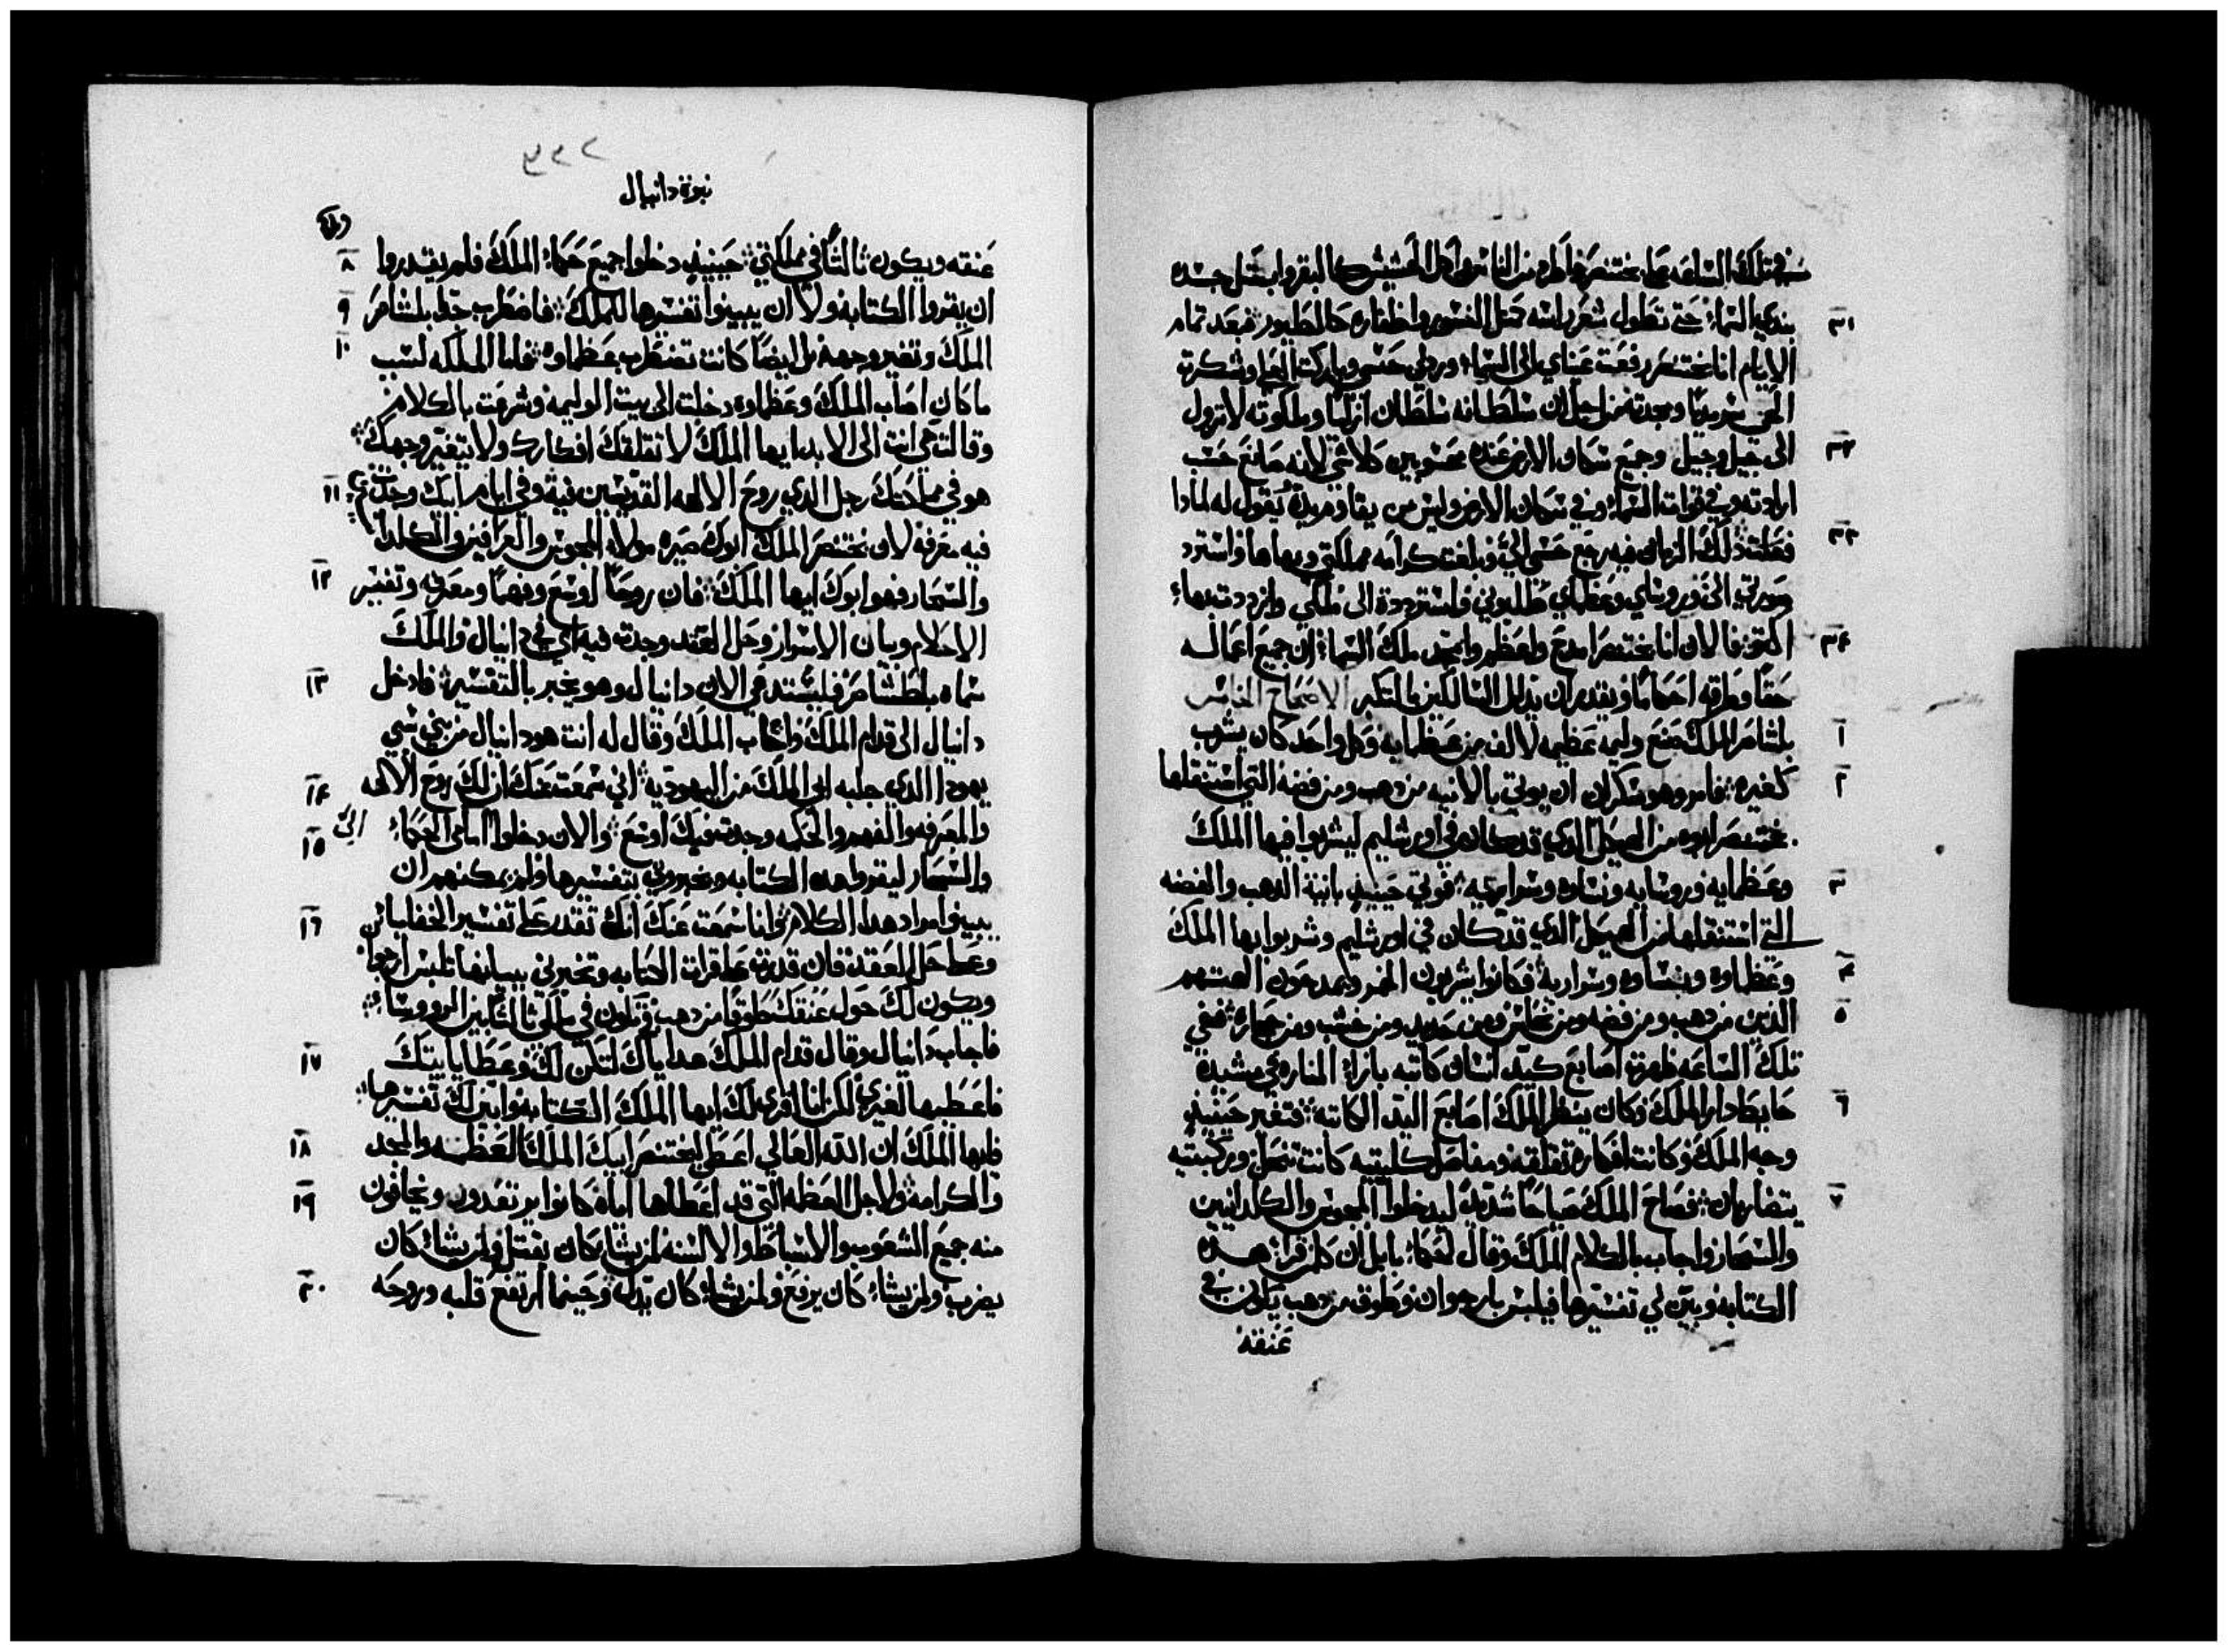 في تلك الساعه على بختنصر فاطرد من الناس واكل الحشيش كالبقر وابتل جسده
٣١ بندي السماء حتي تطول شعر راسه مثل النسور واظفاره كالطيور فبعد تمام
الايام انا بختنصر رفعت عيناي الى السماء ورد لي حسي وباركت العلي وشكرت
الحي سرمديا ومجدته من اجل ان سلطانه سلطان ازليا وملكوته لا تزول
٣٢ الى جيل وجيل وجميع سكان الارض عنده محسوبين كلاشي لانه صانع حسب
ارادته في قوات السماء وفي سكان الارض وليس من يقاوم يده يقول له لمادا
٣٣ فعلت ذلك الزمان فيه رجع حسي اليّ وبلغت كرامه مملكتي وبهاها واسترد
صورتي اليّ ورؤساي وعظماي طلبوني واسترددة الى ملكي وازددت بهاء
٣٤ اكتر فالان انا بختنصر امدح واعظم وامجد ملك السماء ان جميع اعماله
حقا وطرقه احكاما ويقدر ان يدلل السالكين بالتكبر الاصحاح الخامس
١ بلشاصر الملك صنع وليمه عظيمه لالف من عظمايه وكل واحد كان يشرب
٢ كغيره فامر وهو سكران ان يوتي بالانيه من دهب ومن فضه التي استنقلها
بختنصر ابوه من الهيكل الدي قد كان في اورشليم ليشربوا فيها الملك
٣ وعظمايه وروسايه ونساوه وسراريه فوتي حينيذ بانية الدهب والفضه
التي استنقلها من الهيكل الدي قد كان في اورشليم وشربوا بها الملك
٤ وعظماوه ونساوه وسراريه فكانوا يشربون الخمر ويمدحون الهتهم
٥ الذين من دهب ومن فضه ومن نحاس ومن حديد ومن خشب ومن حجاره ففي
تلك الساعه ظهرت اصابع كيد انسان كاتبه بازاء المناره في مشيدة
٦ حايط دار الملك وكان ينظر الملك اصابع اليد الكاتبه فتغير حينيذ
وجه الملك وكانت افكاره تقلقه ومفاصل كليتيه كانت تنحل وركبتيه
٧ يتضاربان فصاح الملك صياحا شديدا ليدخلوا المجوس والكلدانيين
والسحار واجاب بالكلام الملك وقال لحكماء بابل ان كل من قرا هده
الكتابه وبين لي تفسيرها فيلبس بارجوان وطوق من دهب يكون في
عنقه
نبوة دانيال
٨ عنقه ويكون ثالثا في مملكتي حينيذ دخلوا جميع حكماء الملك فلم يقدروا
٩ ان يقروا الكتابه ولا ان يبينوا تفسيرها للملك فاضطرب جدا بلشاصر
١٠ الملك وتغير وجهه بل ايضا كانت تضطرب عظماوه فاما الملكه لسبب
ما كان اصاب الملك وعظماوه دخلت الى بيت الوليمه وشرعت بالكلام
وقالت حي انت الى الابد ايها الملك لا تقلقك افكارك ولا يتغير وجهك
١١ هو في مملكتك رجل الدي روح الالهه القديسين فيه وفي ايام ابيك وجدت
فيه معرفة لان بختنصر الملك ابوك صيره مولاه المجوس والعرافين والكلدانيين
١٢ والسحار فهو ابوك ايها الملك فان روحا اوسع وفهما ومعرفه وتفسير
الاحلام وبيان الاسرار وحل العقد وجدت فيه اي في دانيال والملك
١٣ سماه بلطشاصر فليستدعي الان دانيال وهو يخبر بالتفسير فادخل
دانيال الى قدام الملك واجاب الملك وقال له انت هو دانيال من بني سبي
١٤ يهودا الدي جلبه ابي الملك من اليهوديه اني سمعت عنك ان لك روح الالهه
١٥ والمعرفه والفهم والحكمه وجدت فيك اوسع والان دخلوا امامي الحكماء
والسحار ليقروا هده الكتابه ويخبروني بتفسيرها ولم يمكنهم ان
١٦ يبينوا مراد هدا الكلام وانا سمعت عنك انك تقدر على تفسير الخفايا
وعلى حل العقد فان قدرت على قراة الكتابه وتخبرني ببيانها تلبس ارجوانا
ويكون لك حول عنقك طوقا من دهب وتكون في مملكتي ثالثا بين الروساء
١٧ فاجاب دانيال وقال قدام الملك هداياك لتكن لك وعطايا بيتك
فاعطيها لغيري لكن انا اقري لك ايها الملك الكتابه وابين لك تفسيرها
١٨ فايها الملك ان الله العالي اعطى بختنصر ابيك الملك العظمه والمجد
١٩ والكرامه ولاجل العظمه التي قد اعطاها اياه كانوا يرتعدون ويخافون
منه جميع الشعوب والاسباط والالسنه لمن يشا كان يقتل ولمن يشاء كان
٢٠ يضرب ولمن يشاء كان يرفع ولمن يشاء كان يدلل وحينما ارتفع قلبه وروحه